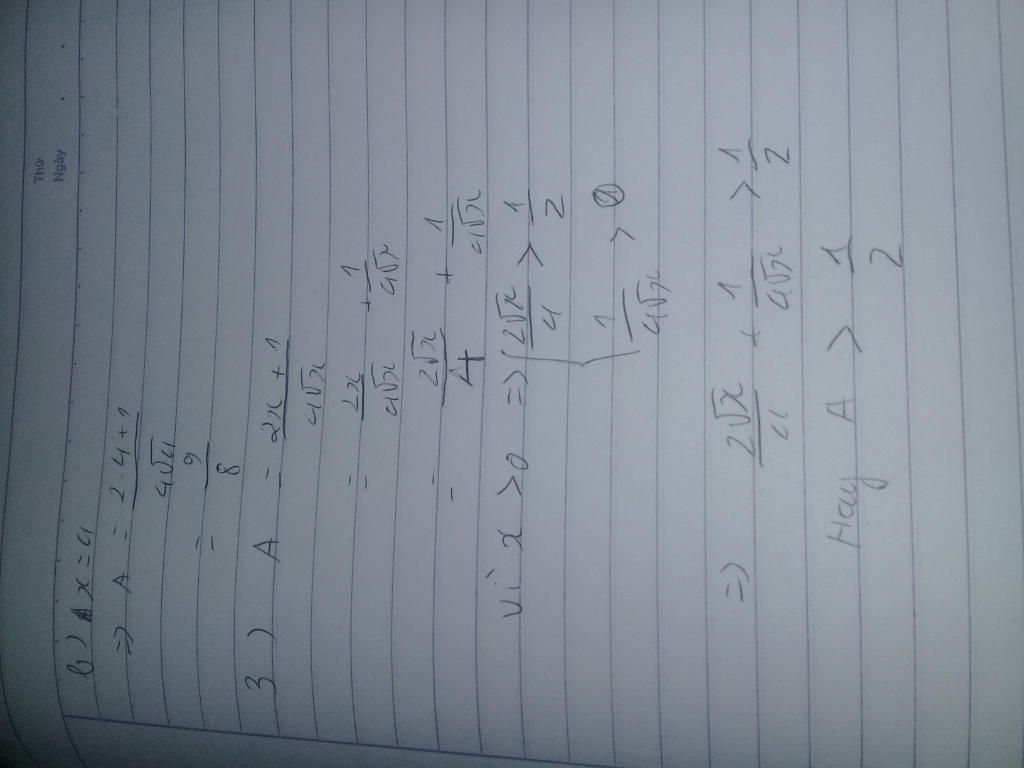 Thứ
Ngày
b) x = 4
=> A = (2.4+1)/(4√4)
= 9/8
3) A = (2x+1)/(4√x)
= 2x/(4√x) + 1/(4√x)
= 2√x/4 + 1/(4√x)
Vì x > 0 => { 2√x/4 > 1/2
1/(4√x) > 0
=> 2√x/4 + 1/(4√x) > 1/2
Hay A > 1/2